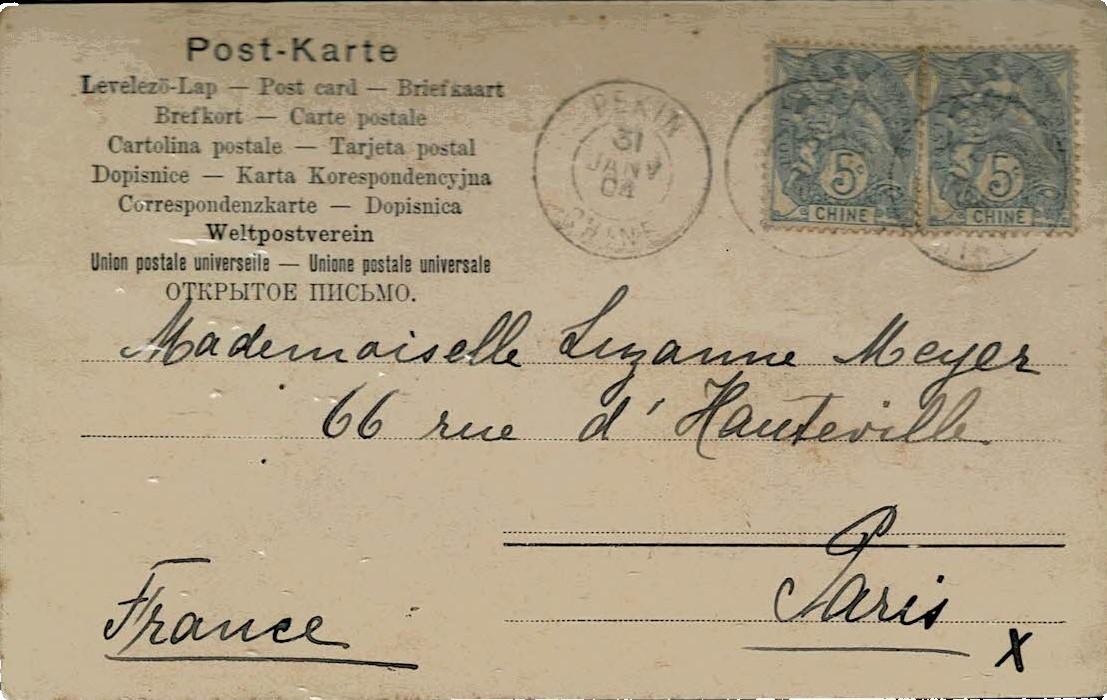 Post-Karte
Levelező-Lap — Post card — Briefkaart
Brefkort — Carte postale
Cartolina postale — Tarjeta postal
Dopisnice — Karta Korespondencyjna
Correspondenzkarte — Dopisnica
Weltpostverein
Union postale universelle — Unione postale universale
ОТКРЫТОЕ ПИСЬМО.
PEKIN
31
JANV
04
CHINE
5c
CHINE
5c
CHINE
Mademoiselle Suzanne Meyer
66 rue d'Hauteville
Paris
France
X